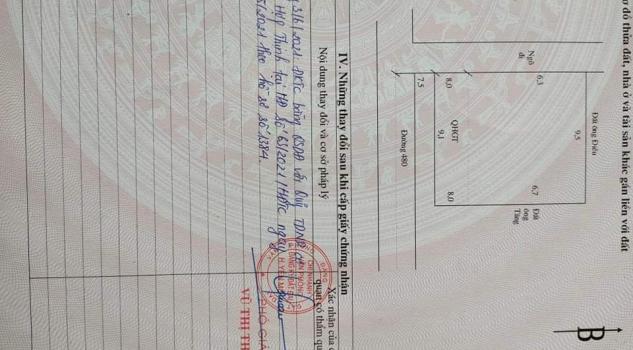 đồ thửa đất, nhà ở và tài sản khác gắn liền với đất
B
Đất ông Điều
9,5
Ngõ đi
6,3
6,7
Đất ông Tăng
8,0
QHGT
9,1
8,0
7,5
Đường 480
IV. Những thay đổi sau khi cấp giấy chứng nhận
Nội dung thay đổi và cơ sở pháp lý
Xác nhận của
quan có thẩm qu
3/6/2021: ĐKTC bằng QSDĐ với Quỹ TDND
Hợp Thịnh tại HĐ số 63/2021/HĐTC ngày
/2021 theo hồ sơ số 1384.
CHI NHÁNH
PHÓ GIÁ
VŨ THỊ TH